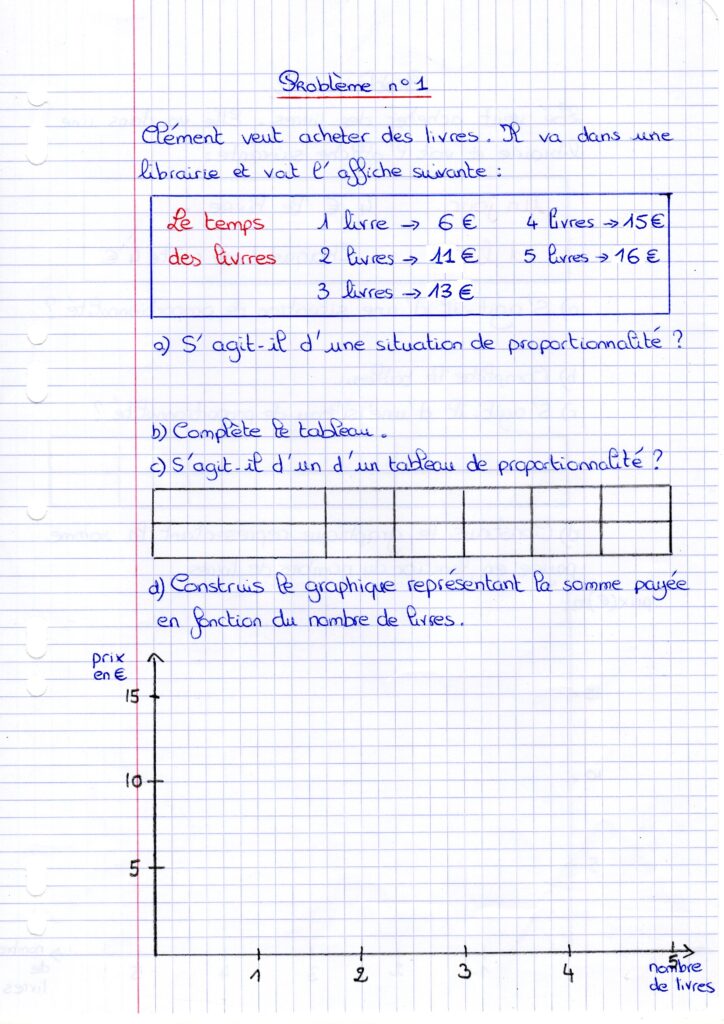 Problème n°1
Clément veut acheter des livres. Il va dans une
librairie et voit l'affiche suivante :
Le temps 1 livre → 6 € 4 livres → 15 €
des livrres 2 livres → 11 € 5 livres → 16 €
3 livres → 13 €
a) S'agit-il d'une situation de proportionnalité ?
b) Complète le tableau.
c) S'agit-il d'un d'un tableau de proportionnalité ?
d) Construis le graphique représentant la somme payée
en fonction du nombre de livres.
prix
en €
15
10
5
1 2 3 4 5
nombre
de livres